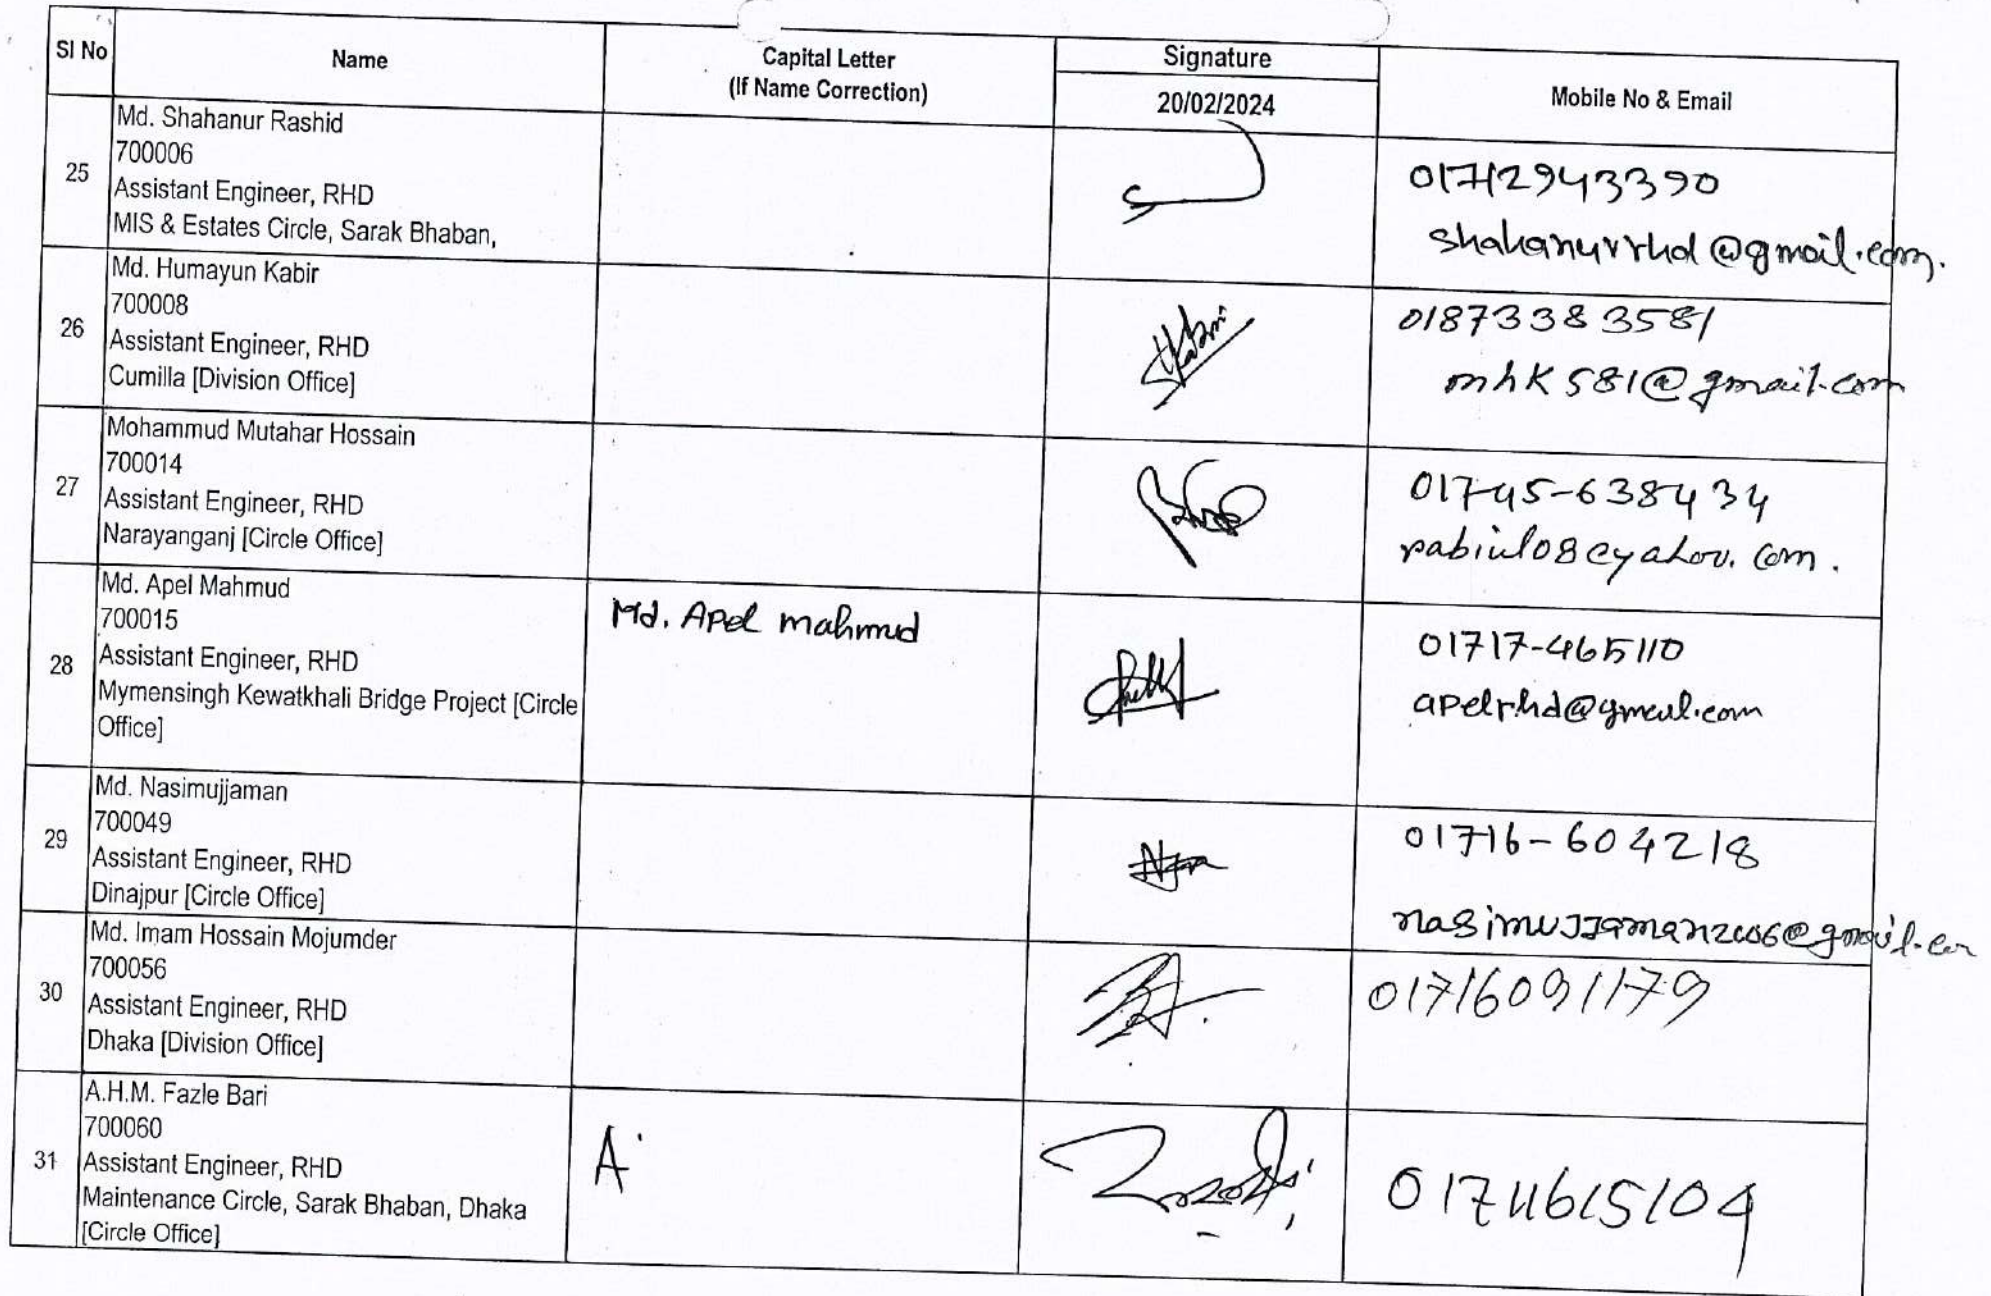 Sl No
Name
Capital Letter
(If Name Correction)
Signature
20/02/2024
Mobile No & Email
25
Md. Shahanur Rashid
700006
Assistant Engineer, RHD
MIS & Estates Circle, Sarak Bhaban,
01712943390
shahanurrhd@gmail.com.
26
Md. Humayun Kabir
700008
Assistant Engineer, RHD
Cumilla [Division Office]
01873383581
mhk581@gmail.com
27
Mohammud Mutahar Hossain
700014
Assistant Engineer, RHD
Narayanganj [Circle Office]
01745-638434
rabiul08@yahoo.com.
28
Md. Apel Mahmud
700015
Assistant Engineer, RHD
Mymensingh Kewatkhali Bridge Project [Circle
Office]
Md. Apel mahmud
01717-465110
apelrhd@gmail.com
29
Md. Nasimujjaman
700049
Assistant Engineer, RHD
Dinajpur [Circle Office]
01716-604218
30
Md. Imam Hossain Mojumder
700056
Assistant Engineer, RHD
Dhaka [Division Office]
01716091179
31
A.H.M. Fazle Bari
700060
Assistant Engineer, RHD
Maintenance Circle, Sarak Bhaban, Dhaka
[Circle Office]
A